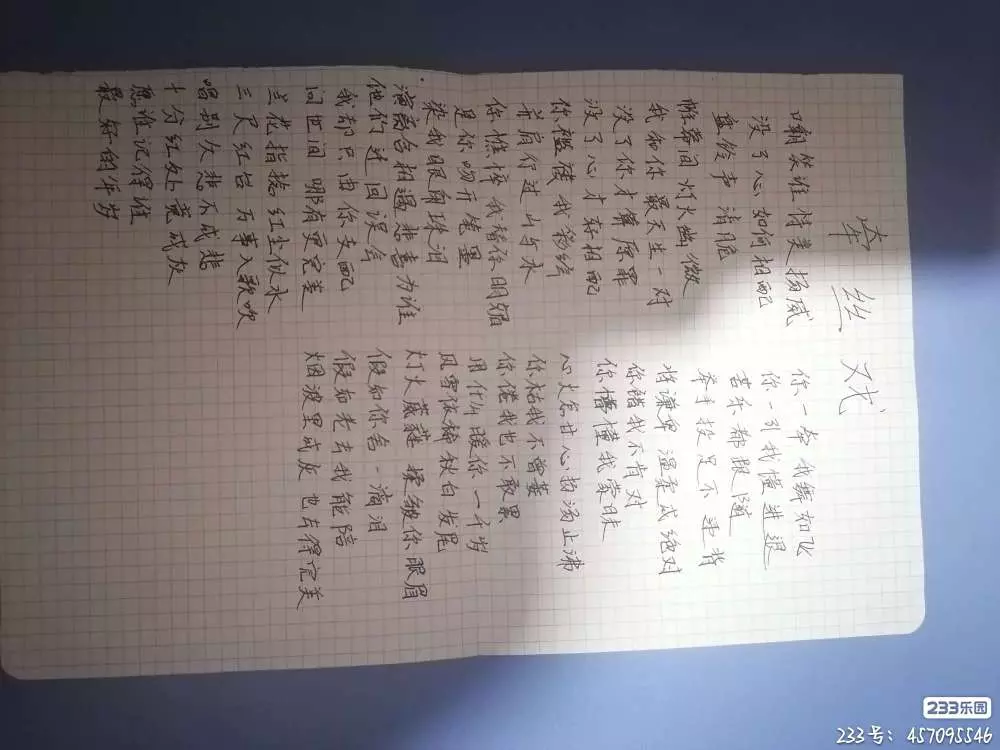 牵丝戏
嘲笑谁恃美扬威
没了心如何相配
盘铃声 清脆
帷幕间灯火幽微
我和你 最天生一对
没了你才算原罪
没了心才好相配
你褴褛我彩绣
并肩行过山与水
你憔悴我替你明媚
是你吻开笔墨
染我眼角珠泪
演离合相遇悲喜为谁
他们迂回误会
我却只由你支配
问世间 哪有更完美
兰花指捻红尘似水
三尺红台 万事入歌吹
唱别久悲不成悲
十分红处竟成灰
愿谁记得谁
最好的年岁
你一牵 我舞如飞
你一引我懂进退
苦乐都跟随
举手投足不违背
将谦卑 温柔成绝对
你错我不肯对
你懵懂我蒙昧
心火怎甘心扬汤止沸
你枯我不曾萎
你倦我也不敢累
用什么暖你一千岁
风雪依稀秋白发尾
灯火葳蕤 揉皱你眼眉
假如你舍一滴泪
假如老去我能陪
烟波里成灰 也去得完美
233乐园
233号：457095546